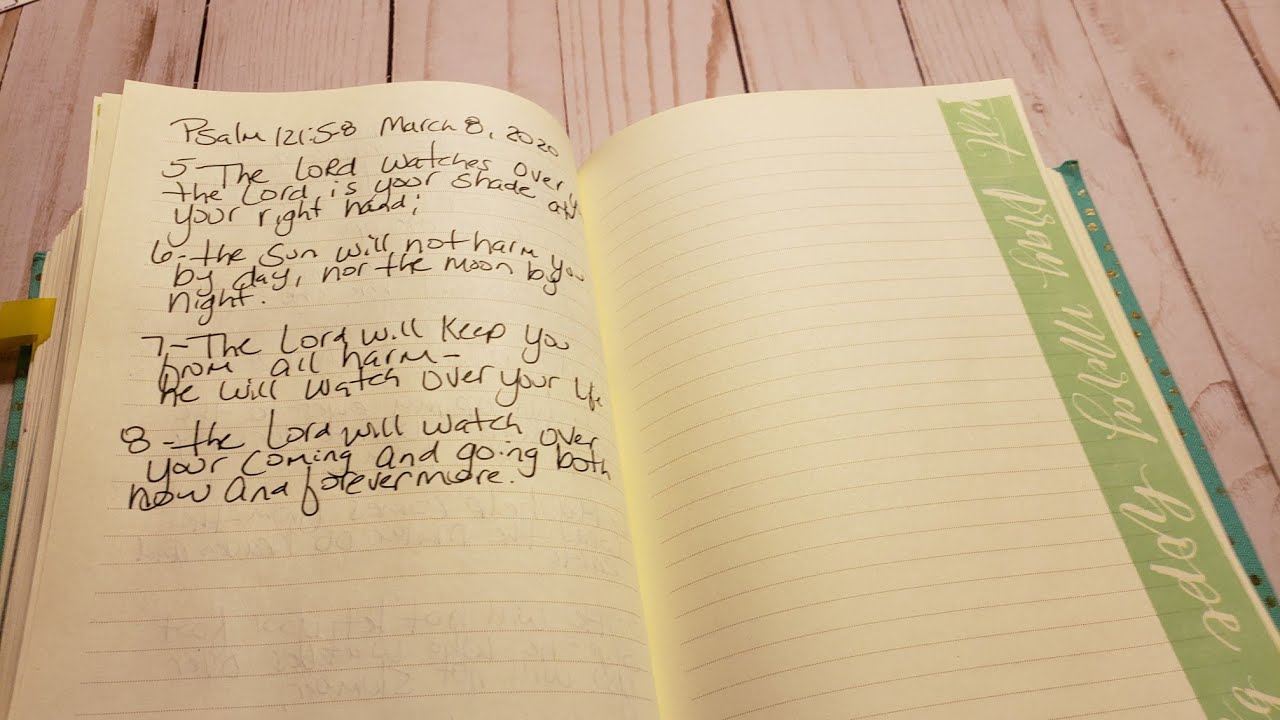 Psalm 121:5-8 March 8, 2020
5-The LORD watches over
the Lord is your shade at
your right hand;
6-the sun will not harm you
by day, nor the moon by
night.
7-The Lord will keep you
from all harm-
he will watch over your life
8-the Lord will watch over
your coming and going both
now and forevermore.
just pray
Mercy
Hope